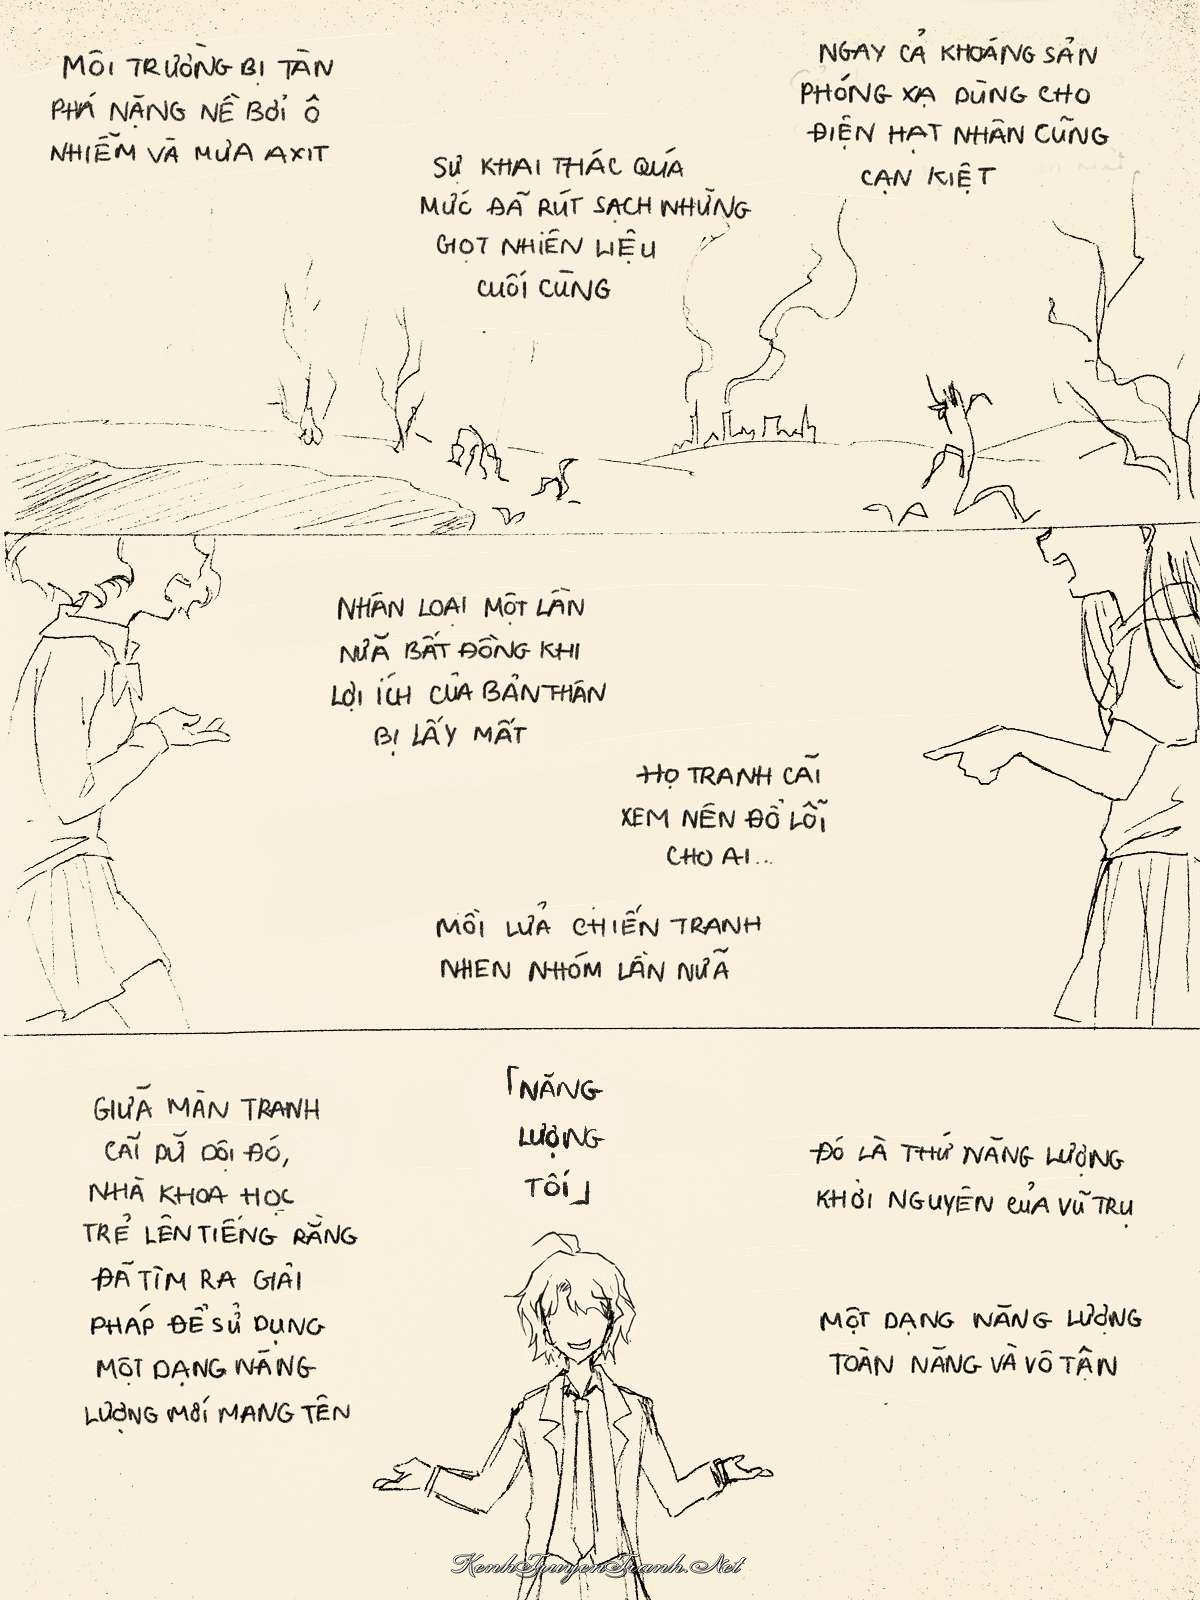 MÔI TRƯỜNG BỊ TÀN
PHÁ NẶNG NỀ BỞI Ô
NHIỄM VÀ MƯA AXIT
SỰ KHAI THÁC QUÁ
MỨC ĐÃ RÚT SẠCH NHỮNG
GIỌT NHIÊN LIỆU
CUỐI CÙNG
NGAY CẢ KHOÁNG SẢN
PHÓNG XẠ DÙNG CHO
ĐIỆN HẠT NHÂN CŨNG
CẠN KIỆT
NHÂN LOẠI MỘT LẦN
NỮA BẤT ĐỒNG KHI
LỢI ÍCH CỦA BẢN THÂN
BỊ LẤY MẤT
HỌ TRANH CÃI
XEM NÊN ĐỔ LỖI
CHO AI...
MỒI LỬA CHIẾN TRANH
NHEN NHÓM LẦN NỮA
GIỮA MÀN TRANH
CÃI DỮ DỘI ĐÓ,
NHÀ KHOA HỌC
TRẺ LÊN TIẾNG RẰNG
ĐÃ TÌM RA GIẢI
PHÁP ĐỂ SỬ DỤNG
MỘT DẠNG NĂNG
LƯỢNG MỚI MANG TÊN
「NĂNG
LƯỢNG
TỐI」
ĐÓ LÀ THỨ NĂNG LƯỢNG
KHỞI NGUYÊN CỦA VŨ TRỤ
MỘT DẠNG NĂNG LƯỢNG
TOÀN NĂNG VÀ VÔ TẬN
KenhTruyenTranh.Net